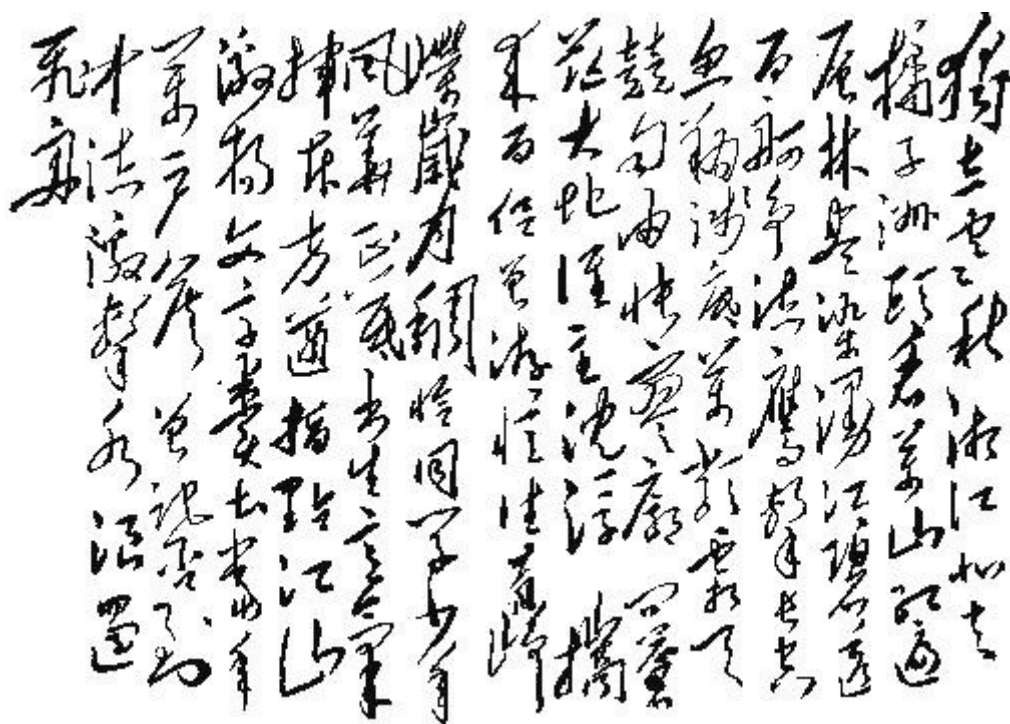 獨立寒秋湘江北去
橘子洲頭看萬山紅遍
層林盡染漫江碧透
百舸爭流鷹擊長空
魚翔淺底萬類霜天
競自由悵寥廓問蒼
茫大地誰主沉浮 攜
來百侶曾游憶往昔崢
嶸歲月稠恰同學少年
風華正茂書生意氣
揮斥方遒指點江山
激揚文字糞土當年
萬戶侯曾記否到
中流激擊水浪遏
飛舟